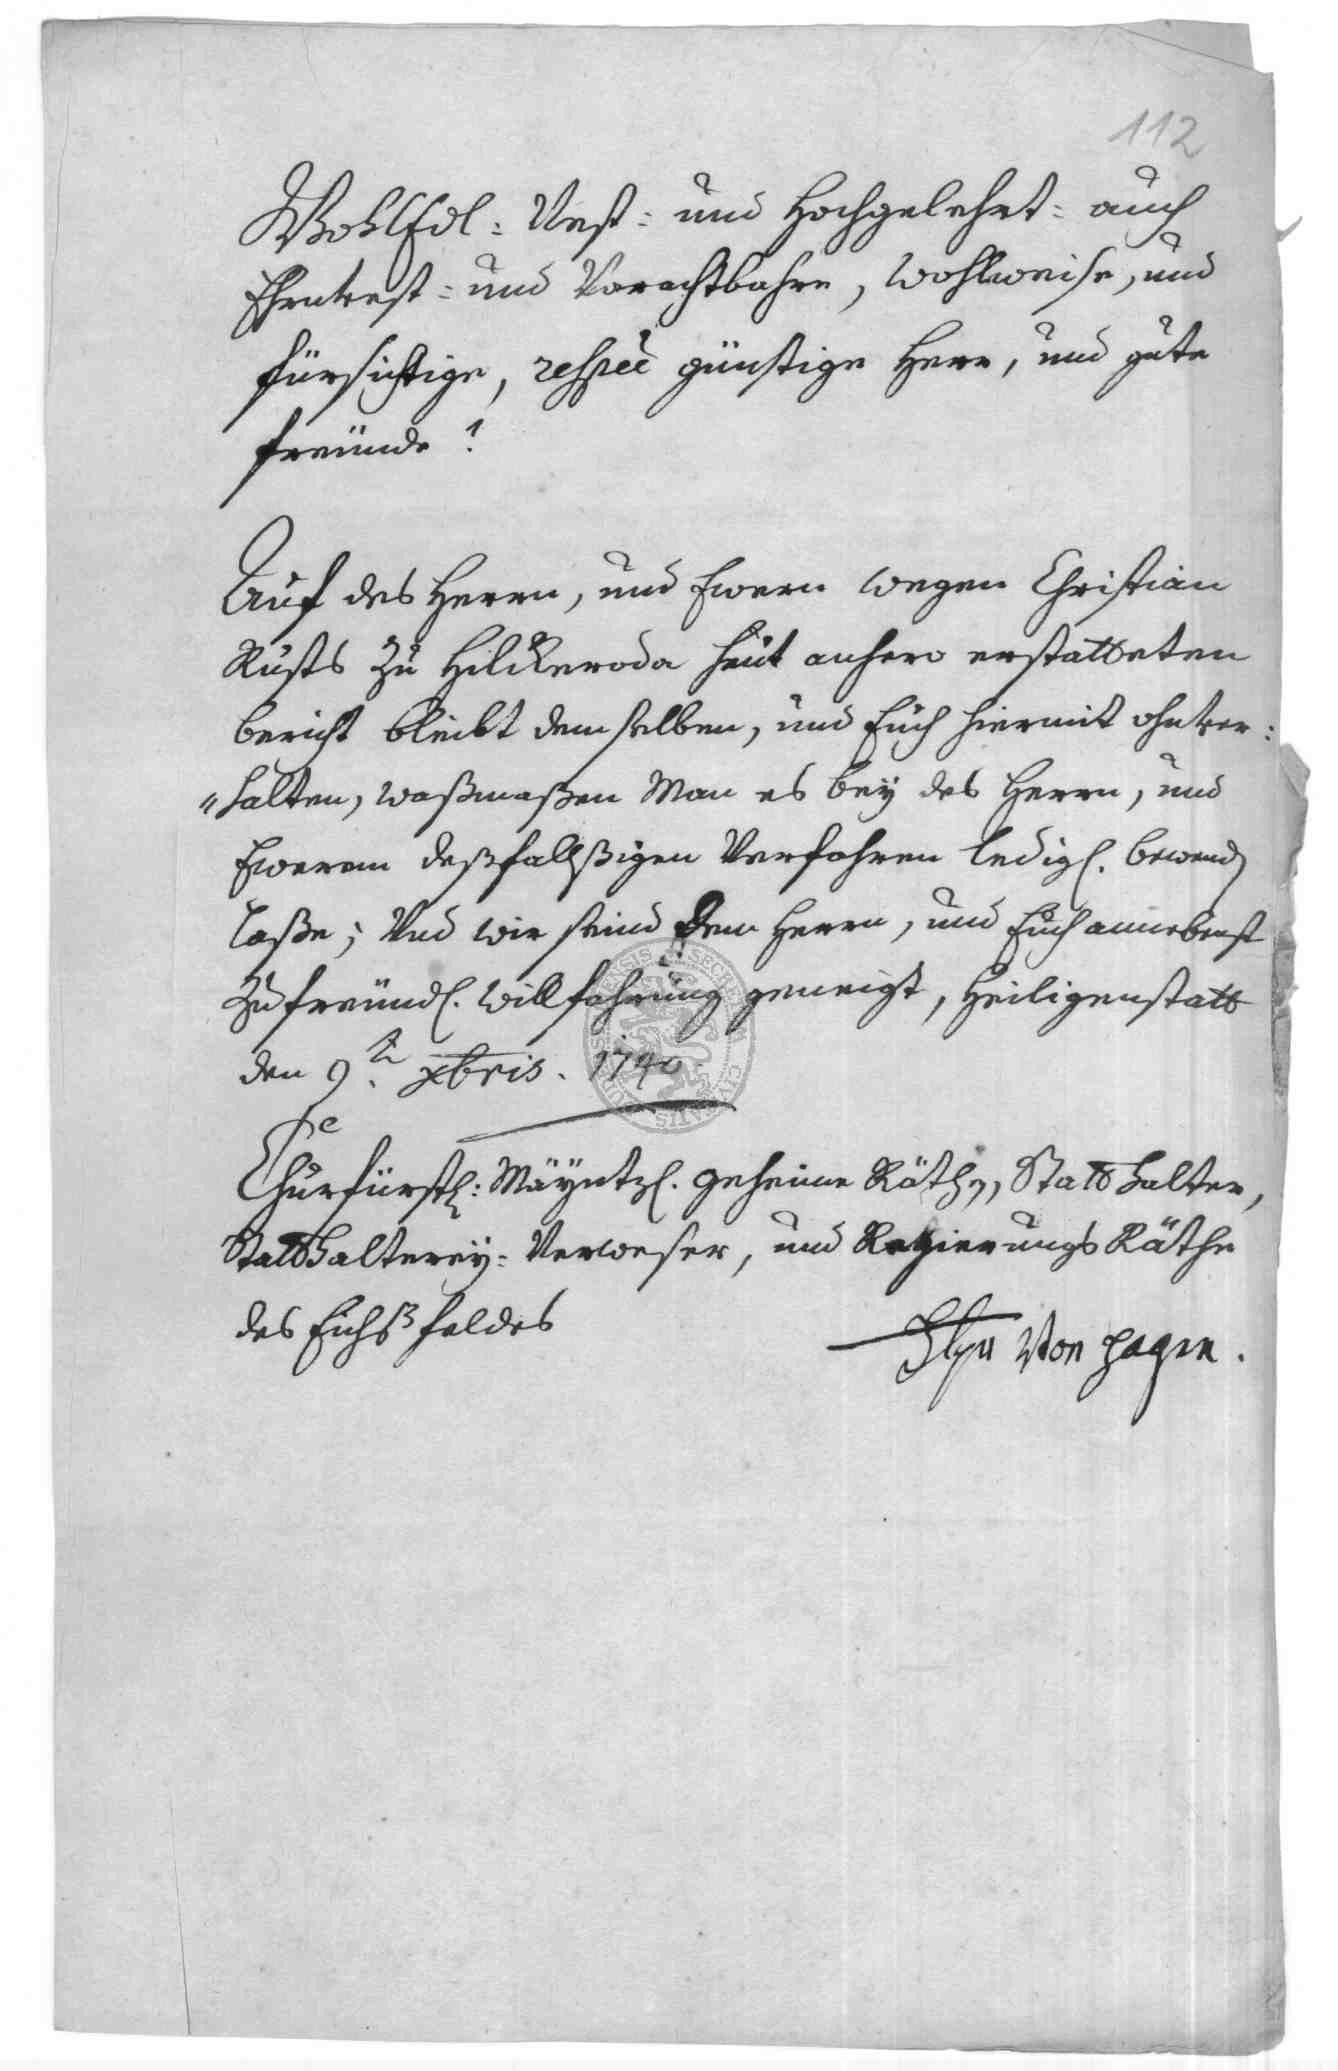 112
WohlEdl: Vest= und Hochgelehrt= auch
Ehrnvest= und Vorachtbahre, wohlweise, und
fürsichtige, respèe günstige Herr, und gute
freünde!
Auf des Herrn, und Ewern wegen Christian
Rusts zu Hilckeroda heut anhero erstatteten
bericht bleibt demselben, und Euch hiermit ohnver:
"halten, waßmaßen Man es bey des Herrn, und
Ewerem deßfalßigen Verfahren ledigl. bewend
laße; Und wir seind dem Herrn, und Euch annebenst
zu freündl. willfahrung geneigt, Heiligenstatt
den 9. xbris. 1740
Churfürstl: Mäyntzl. geheime Räthe, Statthalter,
Statthalterey=Verweser, und Regierungs Räthe
des Eichßfeldes
Von Hagen.